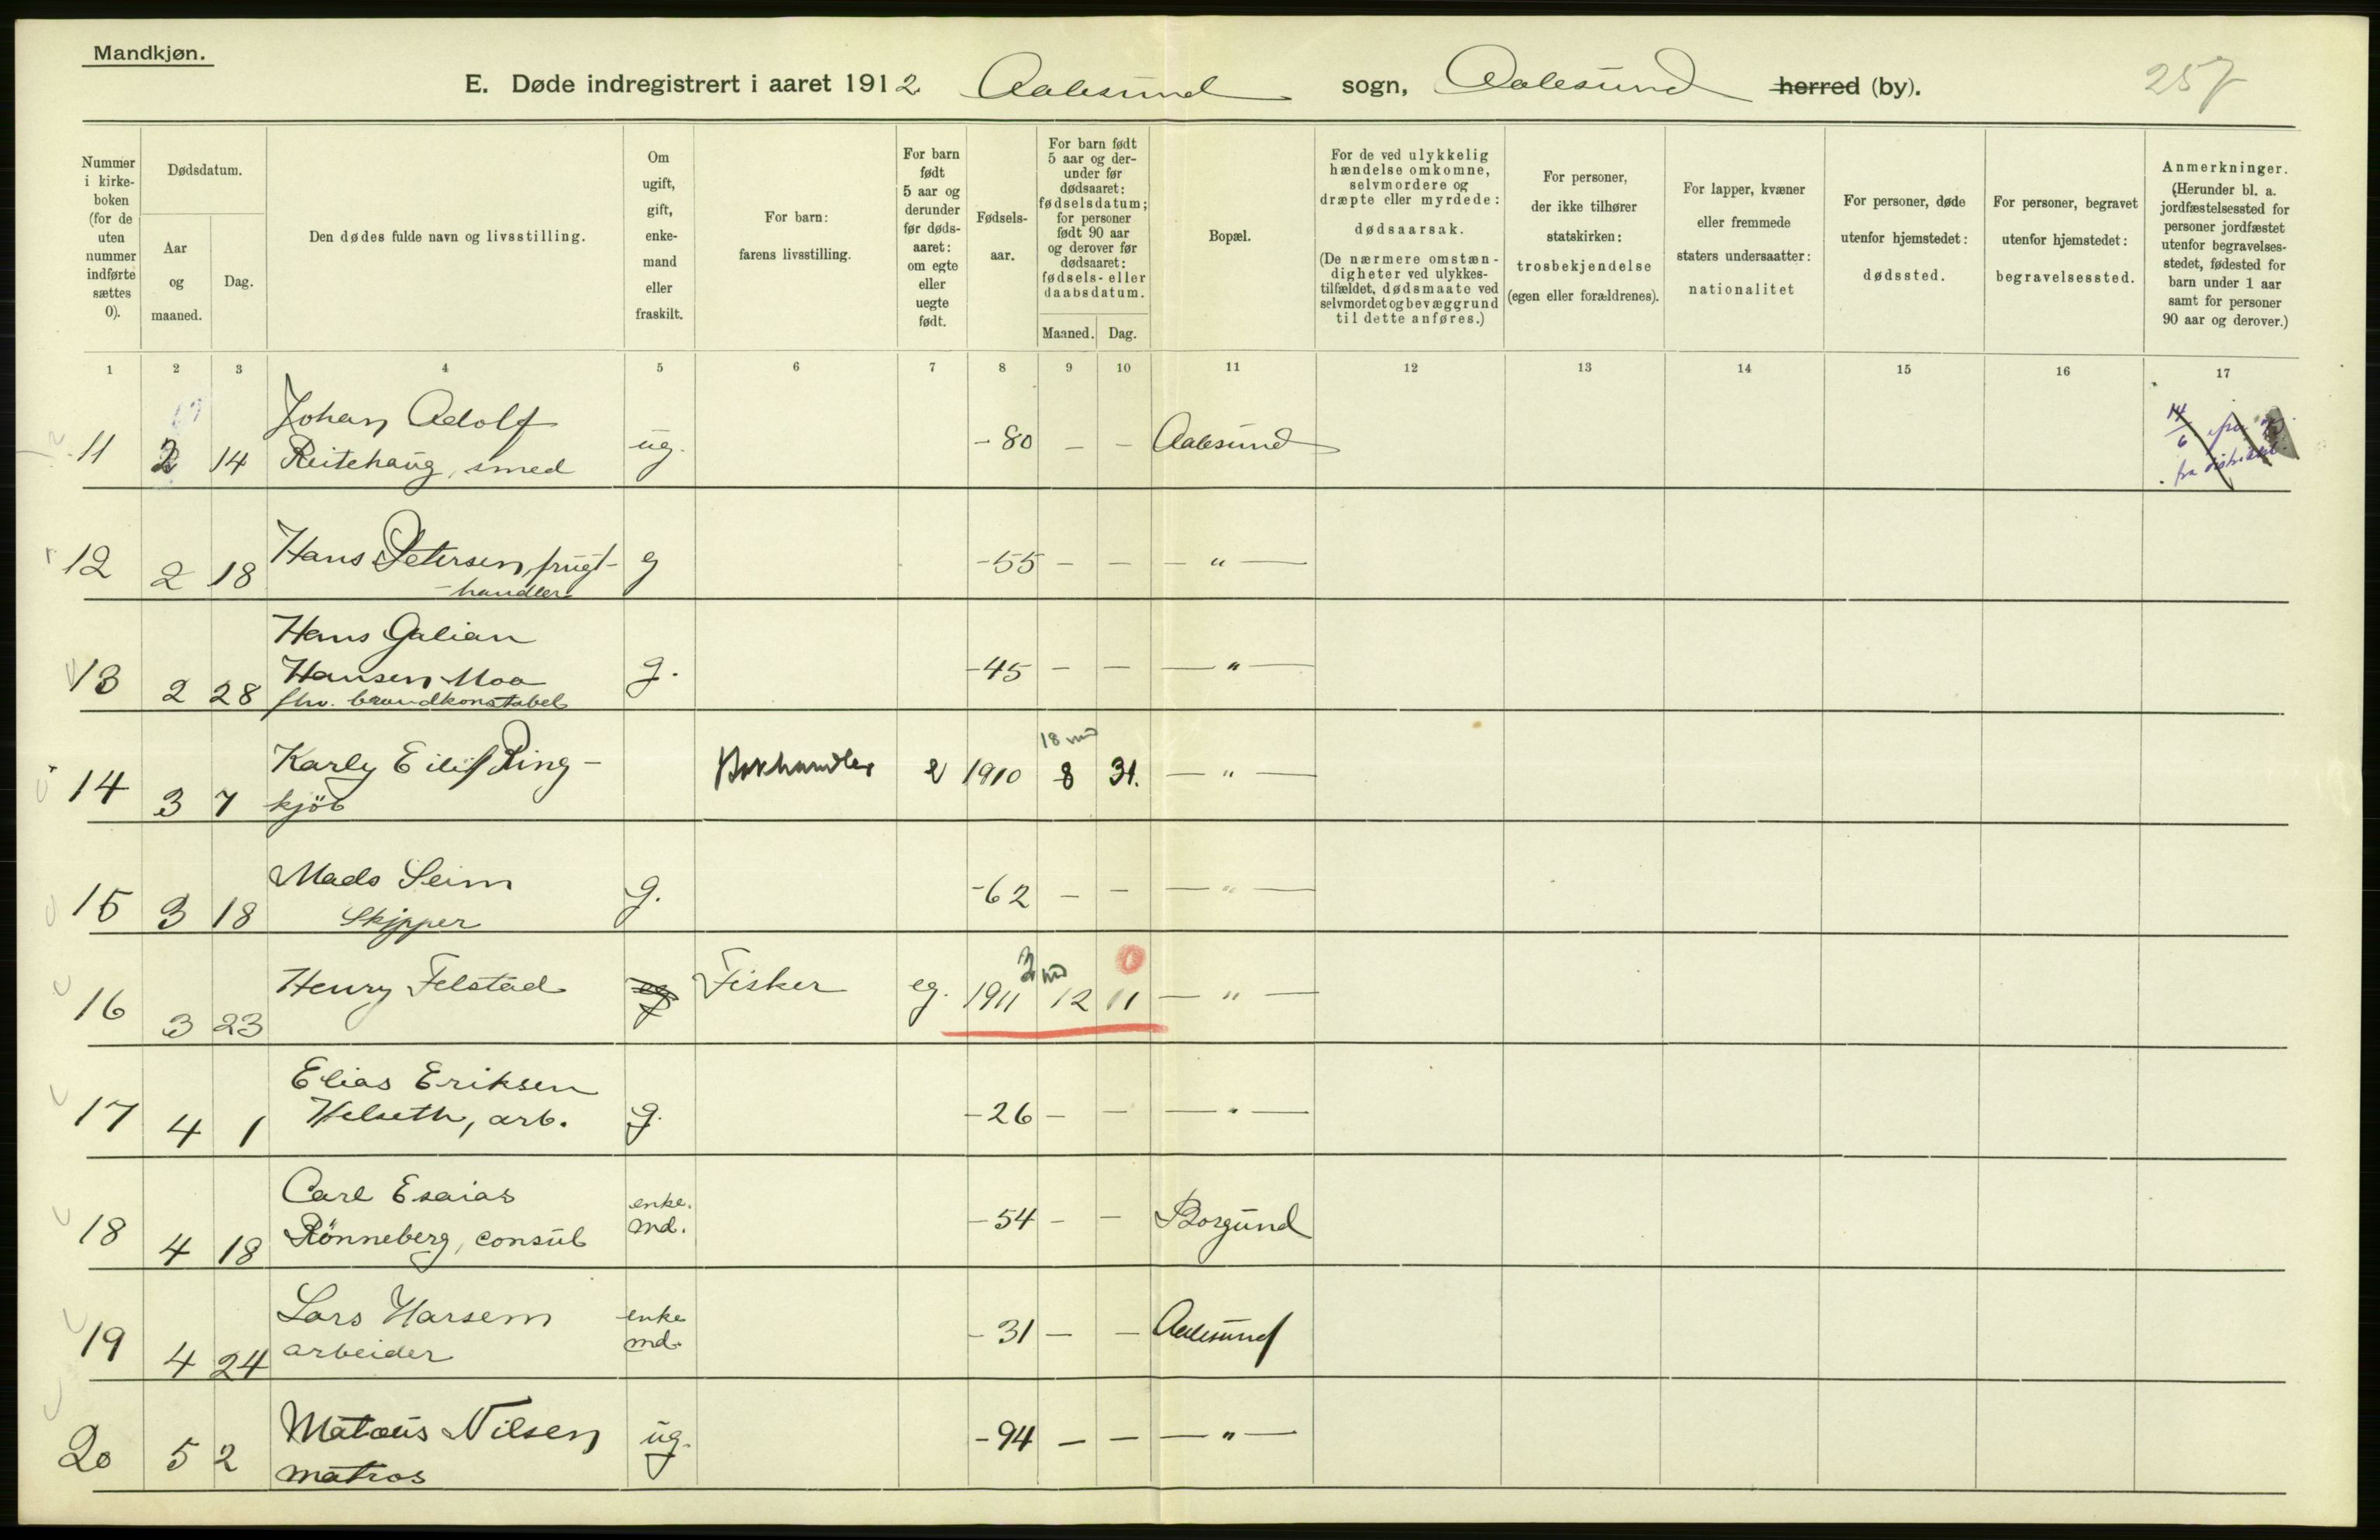 Mandkjøn.
E. Døde indregistrert i aaret 1912. Aalesund sogn, Aalesund herred (by).
257
Nummer i kirke-boken (for de uten nummer indførte sættes 0).
Dødsdatum.
Aar og maaned.
Dag.
Den dødes fulde navn og livsstilling.
Om ugift, gift, enke-mand eller fraskilt.
For barn: farens livsstilling.
For barn født 5 aar og derunder før døds-aaret: om egte eller uegte født.
Fødsels-aar.
For barn født 5 aar og der-under før dødsaaret: fødselsdatum; for personer født 90 aar og derover før dødsaaret: fødsels- eller daabsdatum.
Maaned. Dag.
Bopæl.
For de ved ulykkelig hændelse omkomne, selvmordere og dræpte eller myrdede: dødsaarsak. (De nærmere omstæn-digheter ved ulykkes-tilfældet, dødsmaate ved selvmordet og bevæggrund til dette anføres.)
For personer, der ikke tilhører statskirken: trosbekjendelse (egen eller forældrenes).
For lapper, kvæner eller fremmede staters undersaatter: nationalitet
For personer, døde utenfor hjemstedet: dødssted.
For personer, begravet utenfor hjemstedet: begravelsessted.
Anmerkninger. (Herunder bl. a. jordfæstelsessted for personer jordfæstet utenfor begravelses-stedet, fødested for barn under 1 aar samt for personer 90 aar og derover.)
1 2 3 4 5 6 7 8 9 10 11 12 13 14 15 16 17
Johan Adolf
11 2 14 Reitehaug, smed ug. -80 - - Aalesund
14/6
fra
12 2 18 Hans Petersen, frugt- g -55 - - - " -
-handler
Hans Galian
13 2 28 Hansen Moa g. -45 - - - " -
fhv. brandkonstabel
18 md
14 3 7 Karly Eilif Ring- Bokhandler e 1910 8 31. - " -
kjöb
Mads Seim
15 3 18 Skipper g. -62 - - - " -
3 md 0
16 3 23 Henry Felstad eg Fisker eg. 1911 12 11 - " -
Elias Eriksen
17 4 1 Helseth, arb. g. -26 - - - " -
Carl Esaias enke.
18 4 18 Rönneberg, consul md. -54 - - Borgund
Lars Harsem enke
19 4 24 arbeider md. -31 - - Aalesund
20 5 2 Matæus Nilsen ug. -94 - - - " -
matros